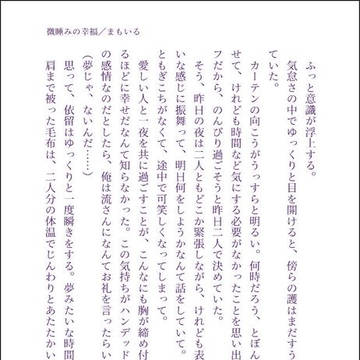 微睡みの幸福／まもいる
ふっと意識が浮上する。
気怠さの中でゆっくりと目を開けると、傍らの護はまだす
ていた。
カーテンの向こうがうっすらと明るい。何時だろう、とぼん
せて、けれども時間など気にする必要がなかったことを思い出
フだから、のんびり過ごそうと昨日二人で決めていた。
そう、昨日の夜は二人ともどこか緊張しながら、けれども表
いな感じに振舞って、明日何をしようかなんて話をしていて。
ともぎこちがなくて、途中で可笑しくなってしまって。
愛しい人と一夜を共に過ごすことが、こんなにも胸が締め付
るほどに幸せだなんて知らなかった。この気持ちがハンデッド
の感情なのだとしたら、俺は流さんになんてお礼を言ったらい
（夢じゃ、ないんだ……）
思って、依留はゆっくりと一度瞬きをする。夢みたいな時間
肩まで被った毛布は、二人分の体温でじんわりとあたたかい